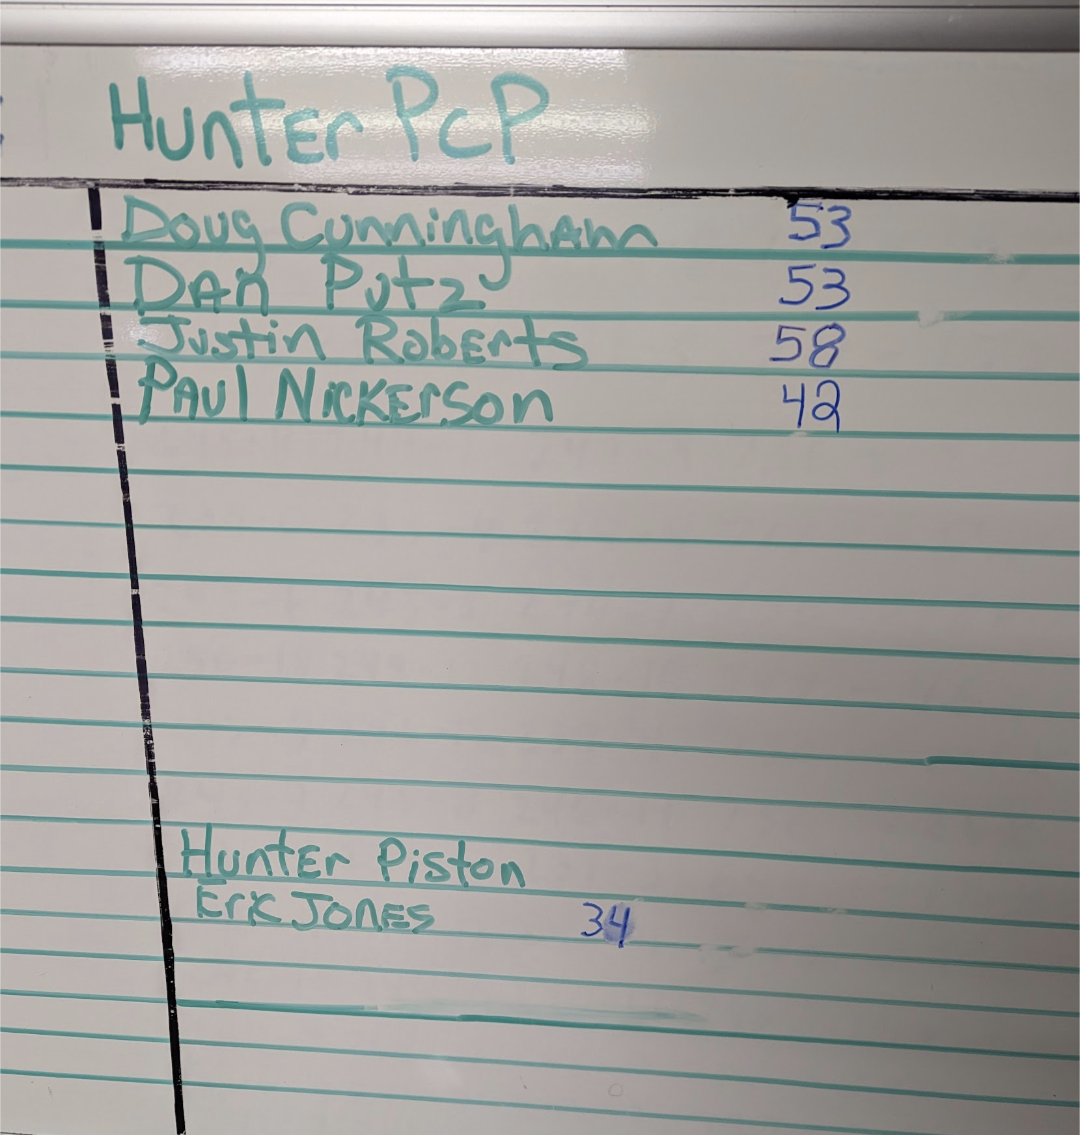 Hunter PcP
Doug Cunningham 53
Dan Putz 53
Justin Roberts 58
Paul Nickerson 42
Hunter Piston
Eric Jones 34